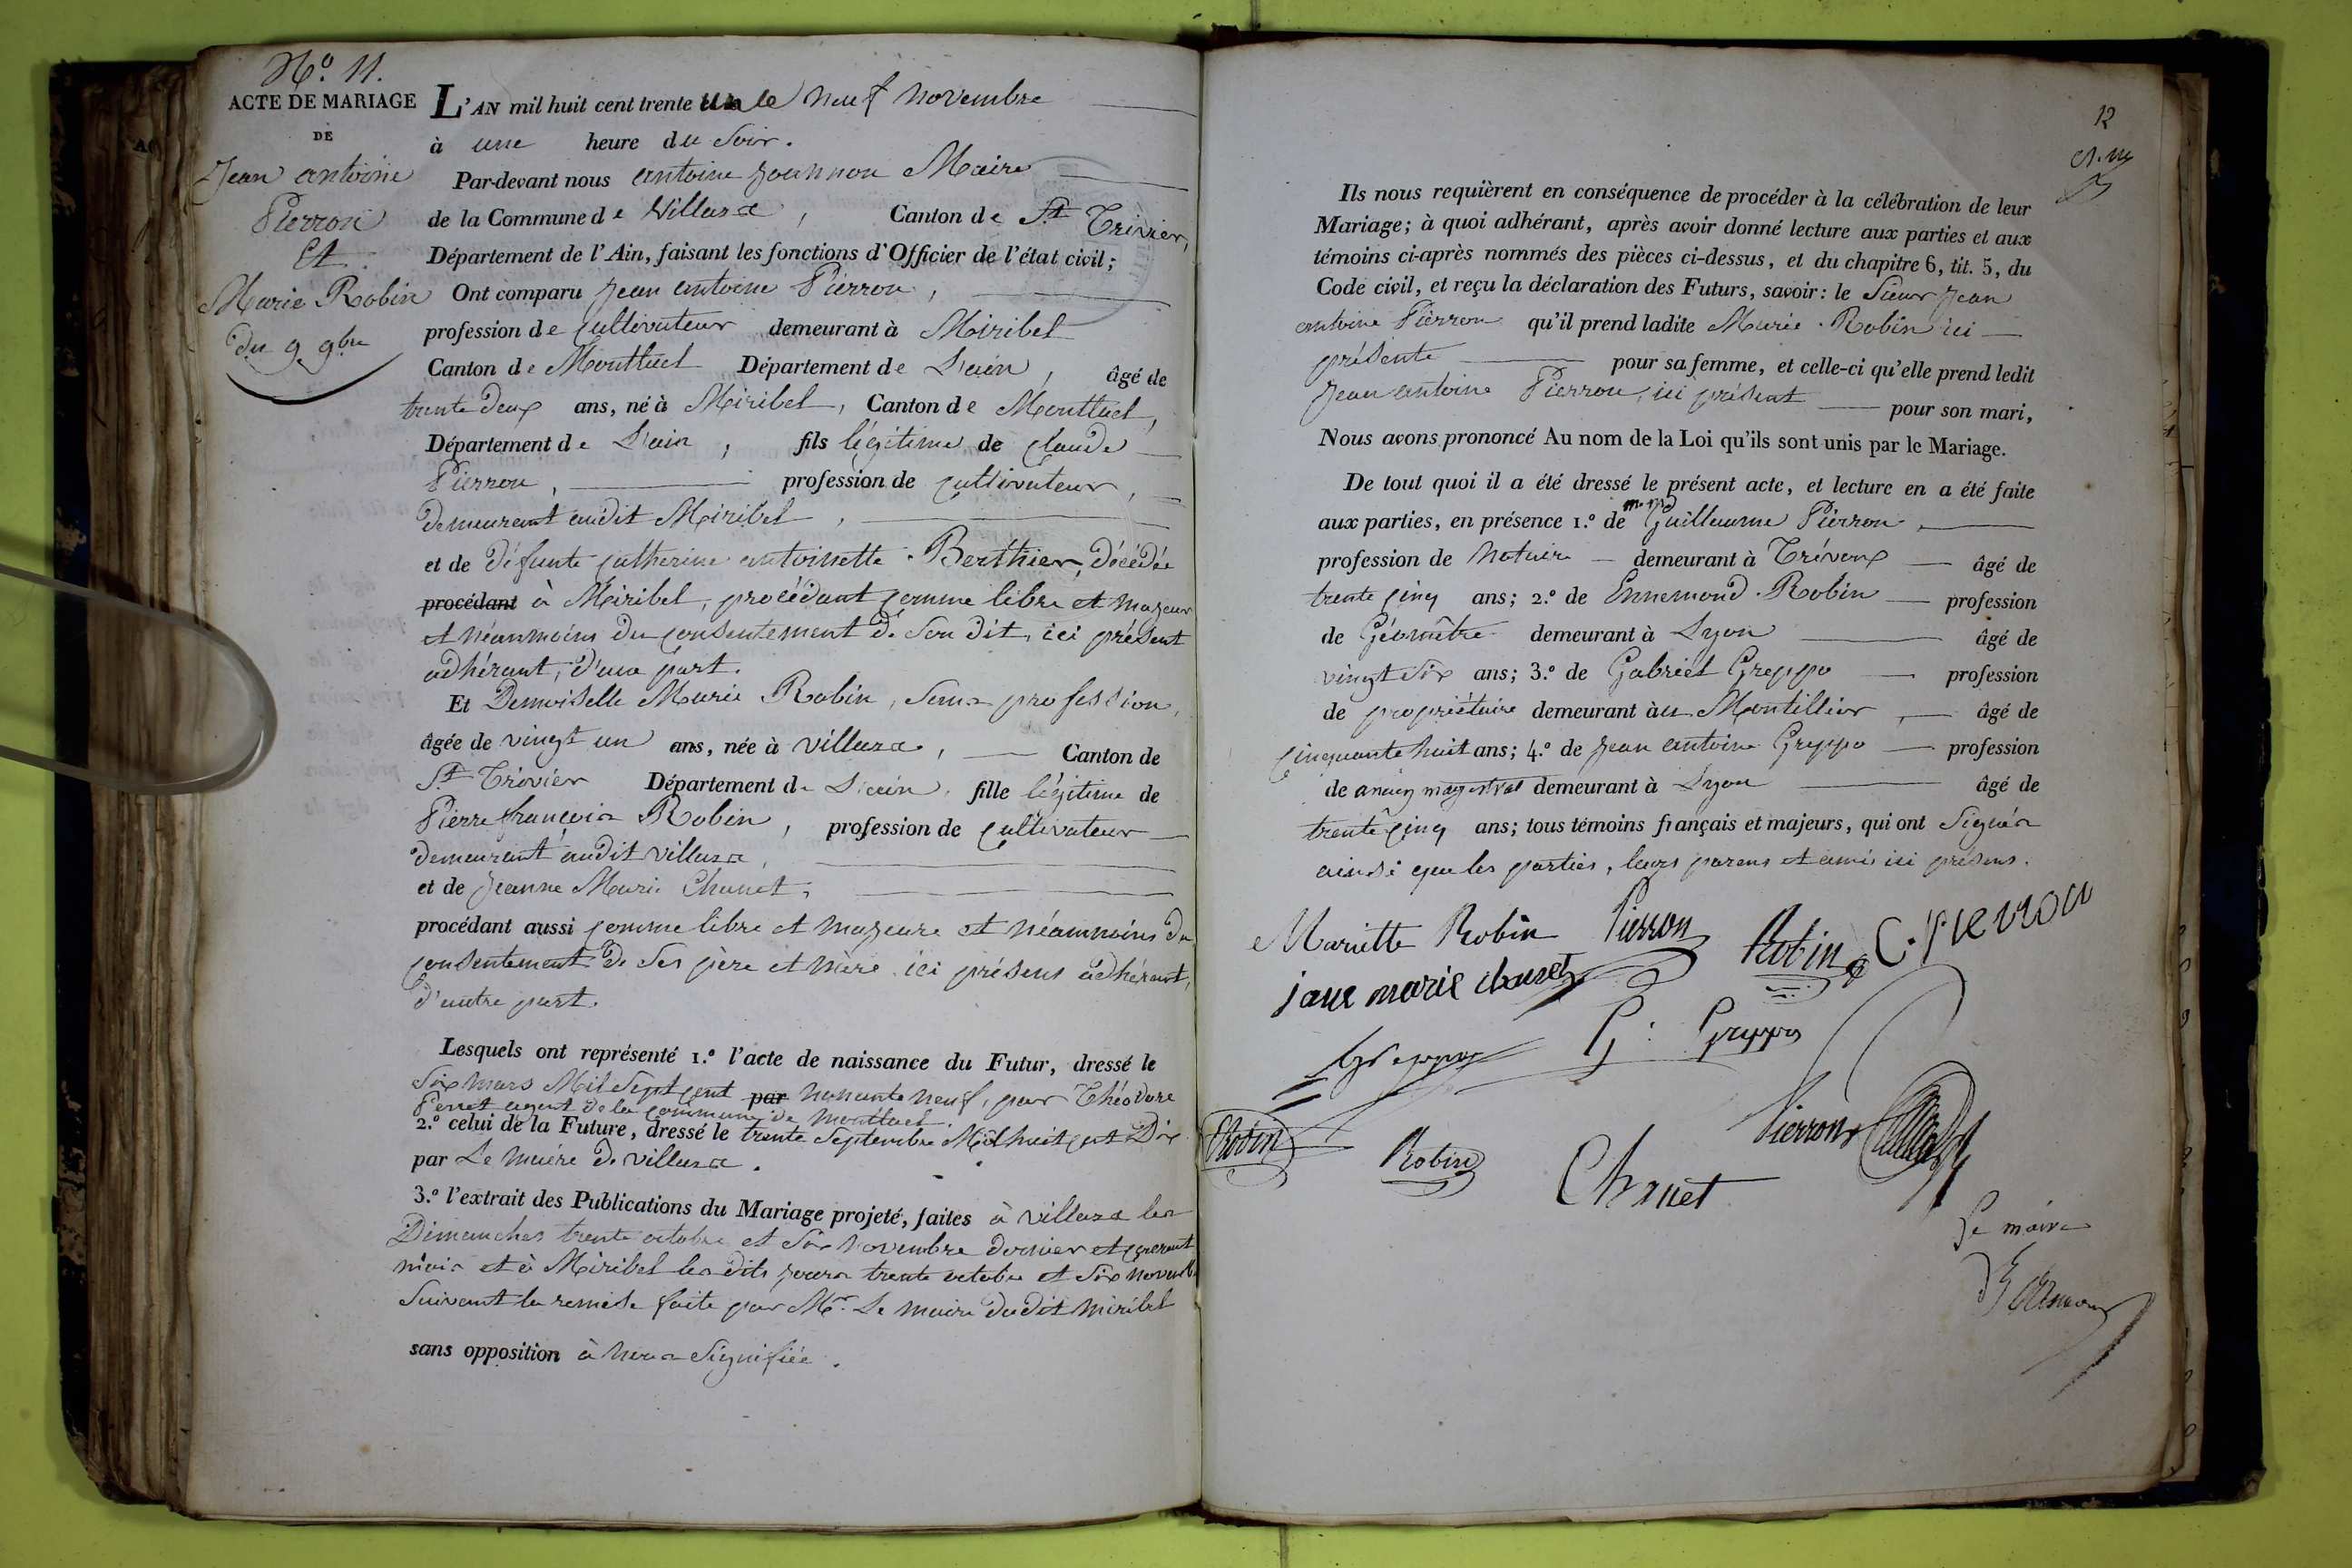 N.º 11.
ACTE DE MARIAGE
DE
Jean antoine
Pierron
Et
Marie Robin
du 9 9bre
L'AN mil huit cent trente un le neuf novembre
à une heure du Soir.
Par-devant nous antoine joannon Maire
de la Commune de Villars, Canton de St Trivier,
Département de l'Ain, faisant les fonctions d'Officier de l'état civil;
Ont comparu Jean antoine Pierron,
profession de Cultivateur demeurant à Miribel
Canton de Montluel Département de L'ain, âgé de
trente deux ans, né à Miribel, Canton de Montluel,
Département de L'ain, fils légitime de Claude
Pierron, profession de cultivateur,
demeurant audit Miribel,
et de défunte catherine antoinette Berthier, décédée
procédant à Miribel, procédant comme libre et majeur
et néanmoins du consentement de son dit, ici présent
adhérant, d'une part.
Et Demoiselle Marie Robin, sans profession,
âgée de vingt un ans, née à villars, Canton de
St Trivier Département de L'ain, fille légitime de
Pierre françois Robin, profession de cultivateur
demeurant audit villars,
et de Jeanne Marie Chanet,
procédant aussi comme libre et majeure et néanmoins du
consentement de ses père et mère ici présens adhérant,
d'autre part.
Lesquels ont représenté 1.º l'acte de naissance du Futur, dressé le
Six mars Mil Sept cent par nonante neuf, par Théodore
Perret agent de la commune de Montluel.
2.º celui de la Future, dressé le trente Septembre Mil huit cent Dix
par Le maire de villars.
3.º l'extrait des Publications du Mariage projeté, faites à villars les
Dimanches trente octobre et Six Novembre dernier et courant
mois et à Miribel les dits jours trente octobre et Six novemb.
Suivant la remise faite par Mr. Le maire dudit miribel
sans opposition à nous Signifiée.
12
Ils nous requièrent en conséquence de procéder à la célébration de leur
Mariage; à quoi adhérant, après avoir donné lecture aux parties et aux
témoins ci-après nommés des pièces ci-dessus, et du chapitre 6, tit. 5, du
Code civil, et reçu la déclaration des Futurs, savoir: le Sieur Jean
antoine Pierron qu'il prend ladite Marie Robin ici
présente pour sa femme, et celle-ci qu'elle prend ledit
Jean antoine Pierron, ici présent pour son mari,
Nous avons prononcé Au nom de la Loi qu'ils sont unis par le Mariage.
De tout quoi il a été dressé le présent acte, et lecture en a été faite
aux parties, en présence 1.º de Guillaume Pierron,
profession de Notaire demeurant à Trévoux âgé de
trente cinq ans; 2.º de Ennemond Robin profession
de Géomètre demeurant à Lyon âgé de
vingt Six ans; 3.º de Gabriel Greppo profession
de propriétaire demeurant àu Montillier, âgé de
cinquante huit ans; 4.º de Jean antoine Greppo profession
de ancien magistrat demeurant à Lyon âgé de
trente cinq ans; tous témoins français et majeurs, qui ont Signés
ainsi que les parties, leurs parens et amis ici présens.
Mariette Robin Pierron Robin C. Pierron
jane marie chanet
Greppo G. Greppo
Robin Robin Chanet Pierron
Le maire
Joannon